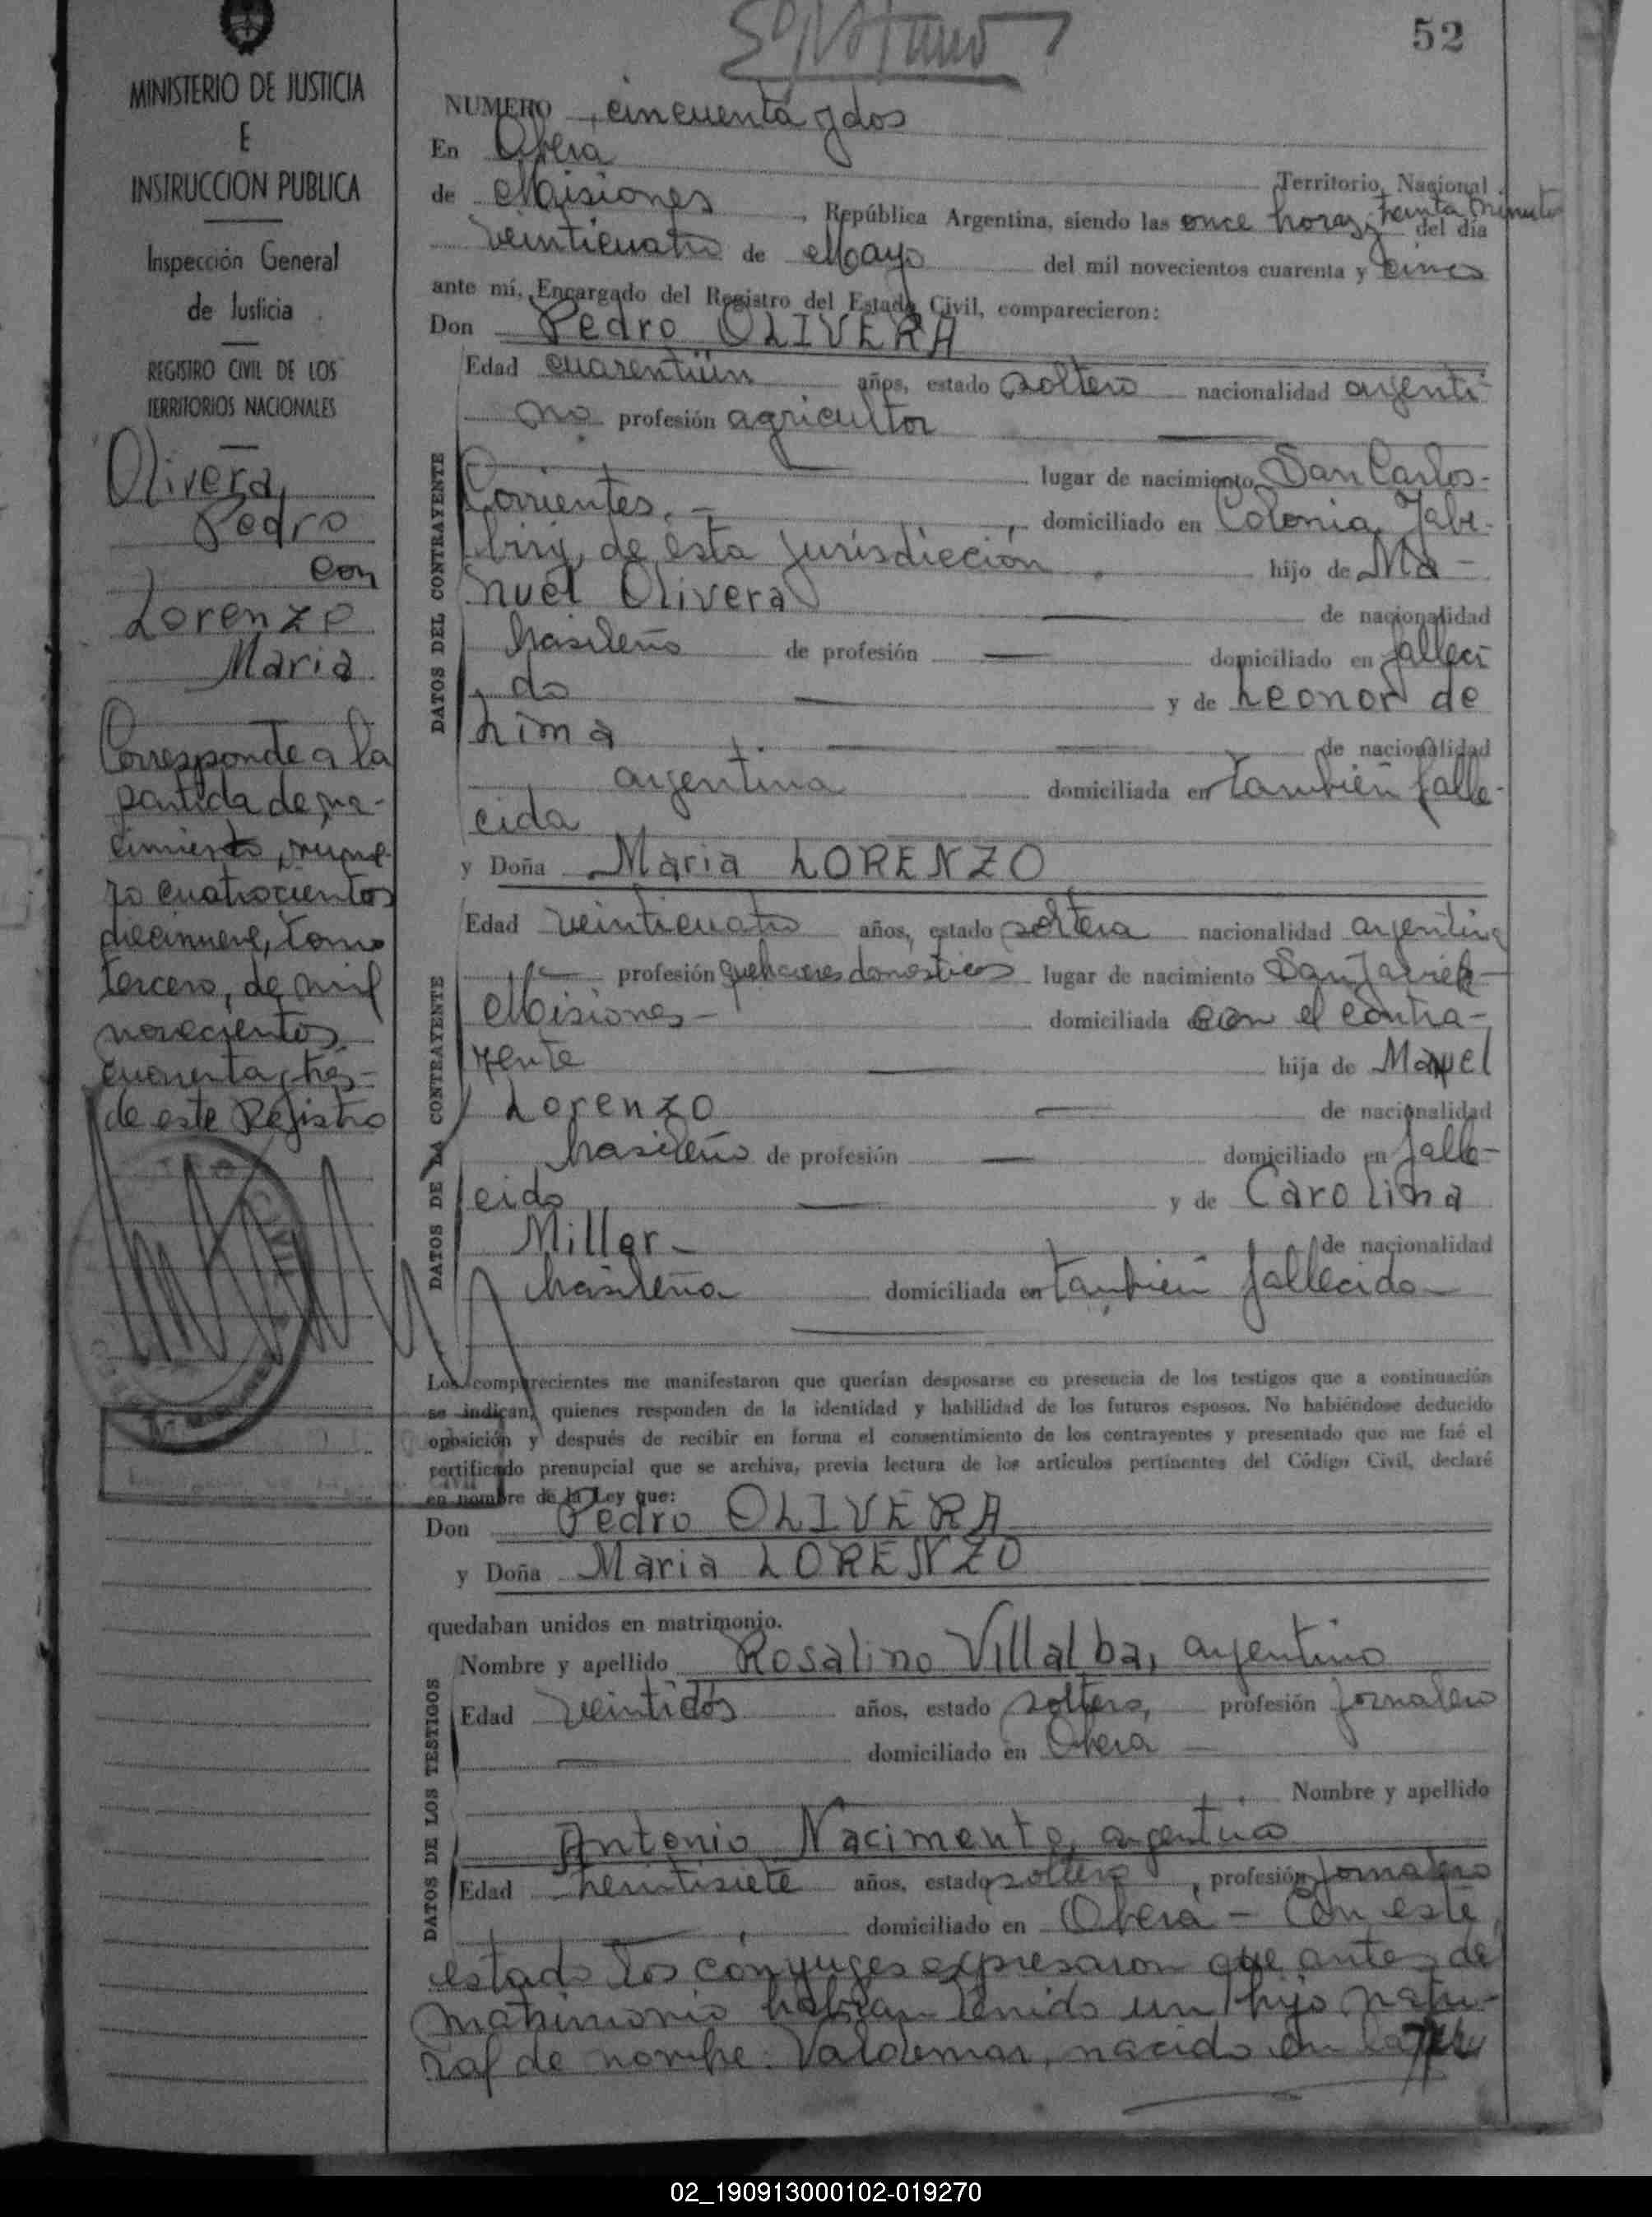 52
MINISTERIO DE JUSTICIA
E
INSTRUCCION PUBLICA
Inspección General
de Justicia
REGISTRO CIVIL DE LOS
TERRITORIOS NACIONALES
Olivera,
Pedro
con
Lorenzo
Maria
Corresponde a la
partida de na-
cimiento, nume-
ro cuatrocientos
diecinueve, tomo
tercero, de mil
novecientos
cuarenta y tres
de este Registro
NUMERO cincuenta y dos
En Obera
Territorio Nacional
de Misiones, República Argentina, siendo las once horas, treinta minutos del día
veinticuatro de Mayo del mil novecientos cuarenta y cinco
ante mí, Encargado del Registro del Estado Civil, comparecieron:
Don Pedro OLIVERA
DATOS DEL CONTRAYENTE
Edad cuarentiún años, estado soltero nacionalidad argenti-
no profesión agricultor
lugar de nacimiento San Carlos-
Corrientes.- domiciliado en Colonia Yabe-
biry, de esta jurisdicción hijo de Ma-
nuel Olivera de nacionalidad
brasileño de profesión — domiciliado en falleci
do — y de Leonor de
Lima — de nacionalidad
argentina domiciliada en también falle-
cida
y Doña Maria LORENZO
DATOS DE LA CONTRAYENTE
Edad veinticuatro años, estado soltera nacionalidad argentina
profesión quehaceres domesticos lugar de nacimiento San Javier-
Misiones- domiciliada con el contra-
yente — hija de Manuel
Lorenzo — de nacionalidad
brasileño de profesión — domiciliado en falle-
cido — y de Carolina
Miller- de nacionalidad
brasileña domiciliada en también fallecida
Los comparecientes me manifestaron que querían desposarse en presencia de los testigos que a continuación
se indican, quienes responden de la identidad y habilidad de los futuros esposos. No habiéndose deducido
oposición y después de recibir en forma el consentimiento de los contrayentes y presentado que me fué el
certificado prenupcial que se archiva, previa lectura de los artículos pertinentes del Código Civil, declaré
en nombre de la Ley que:
Don Pedro OLIVERA
y Doña Maria LORENZO
quedaban unidos en matrimonio.
DATOS DE LOS TESTIGOS
Nombre y apellido Rosalino Villalba, argentino
Edad veintidós años, estado soltero, profesión jornalero
— domiciliado en Obera —
Nombre y apellido
Antonio Nacimento, argentino
Edad treintisiete años, estado soltero, profesión jornalero
domiciliado en Obera - Con este
estado los cónyuges expresaron que antes de
matrimonio habían tenido un hijo natu-
ral de nombre: Valdemar, nacido en la
02_190913000102-019270